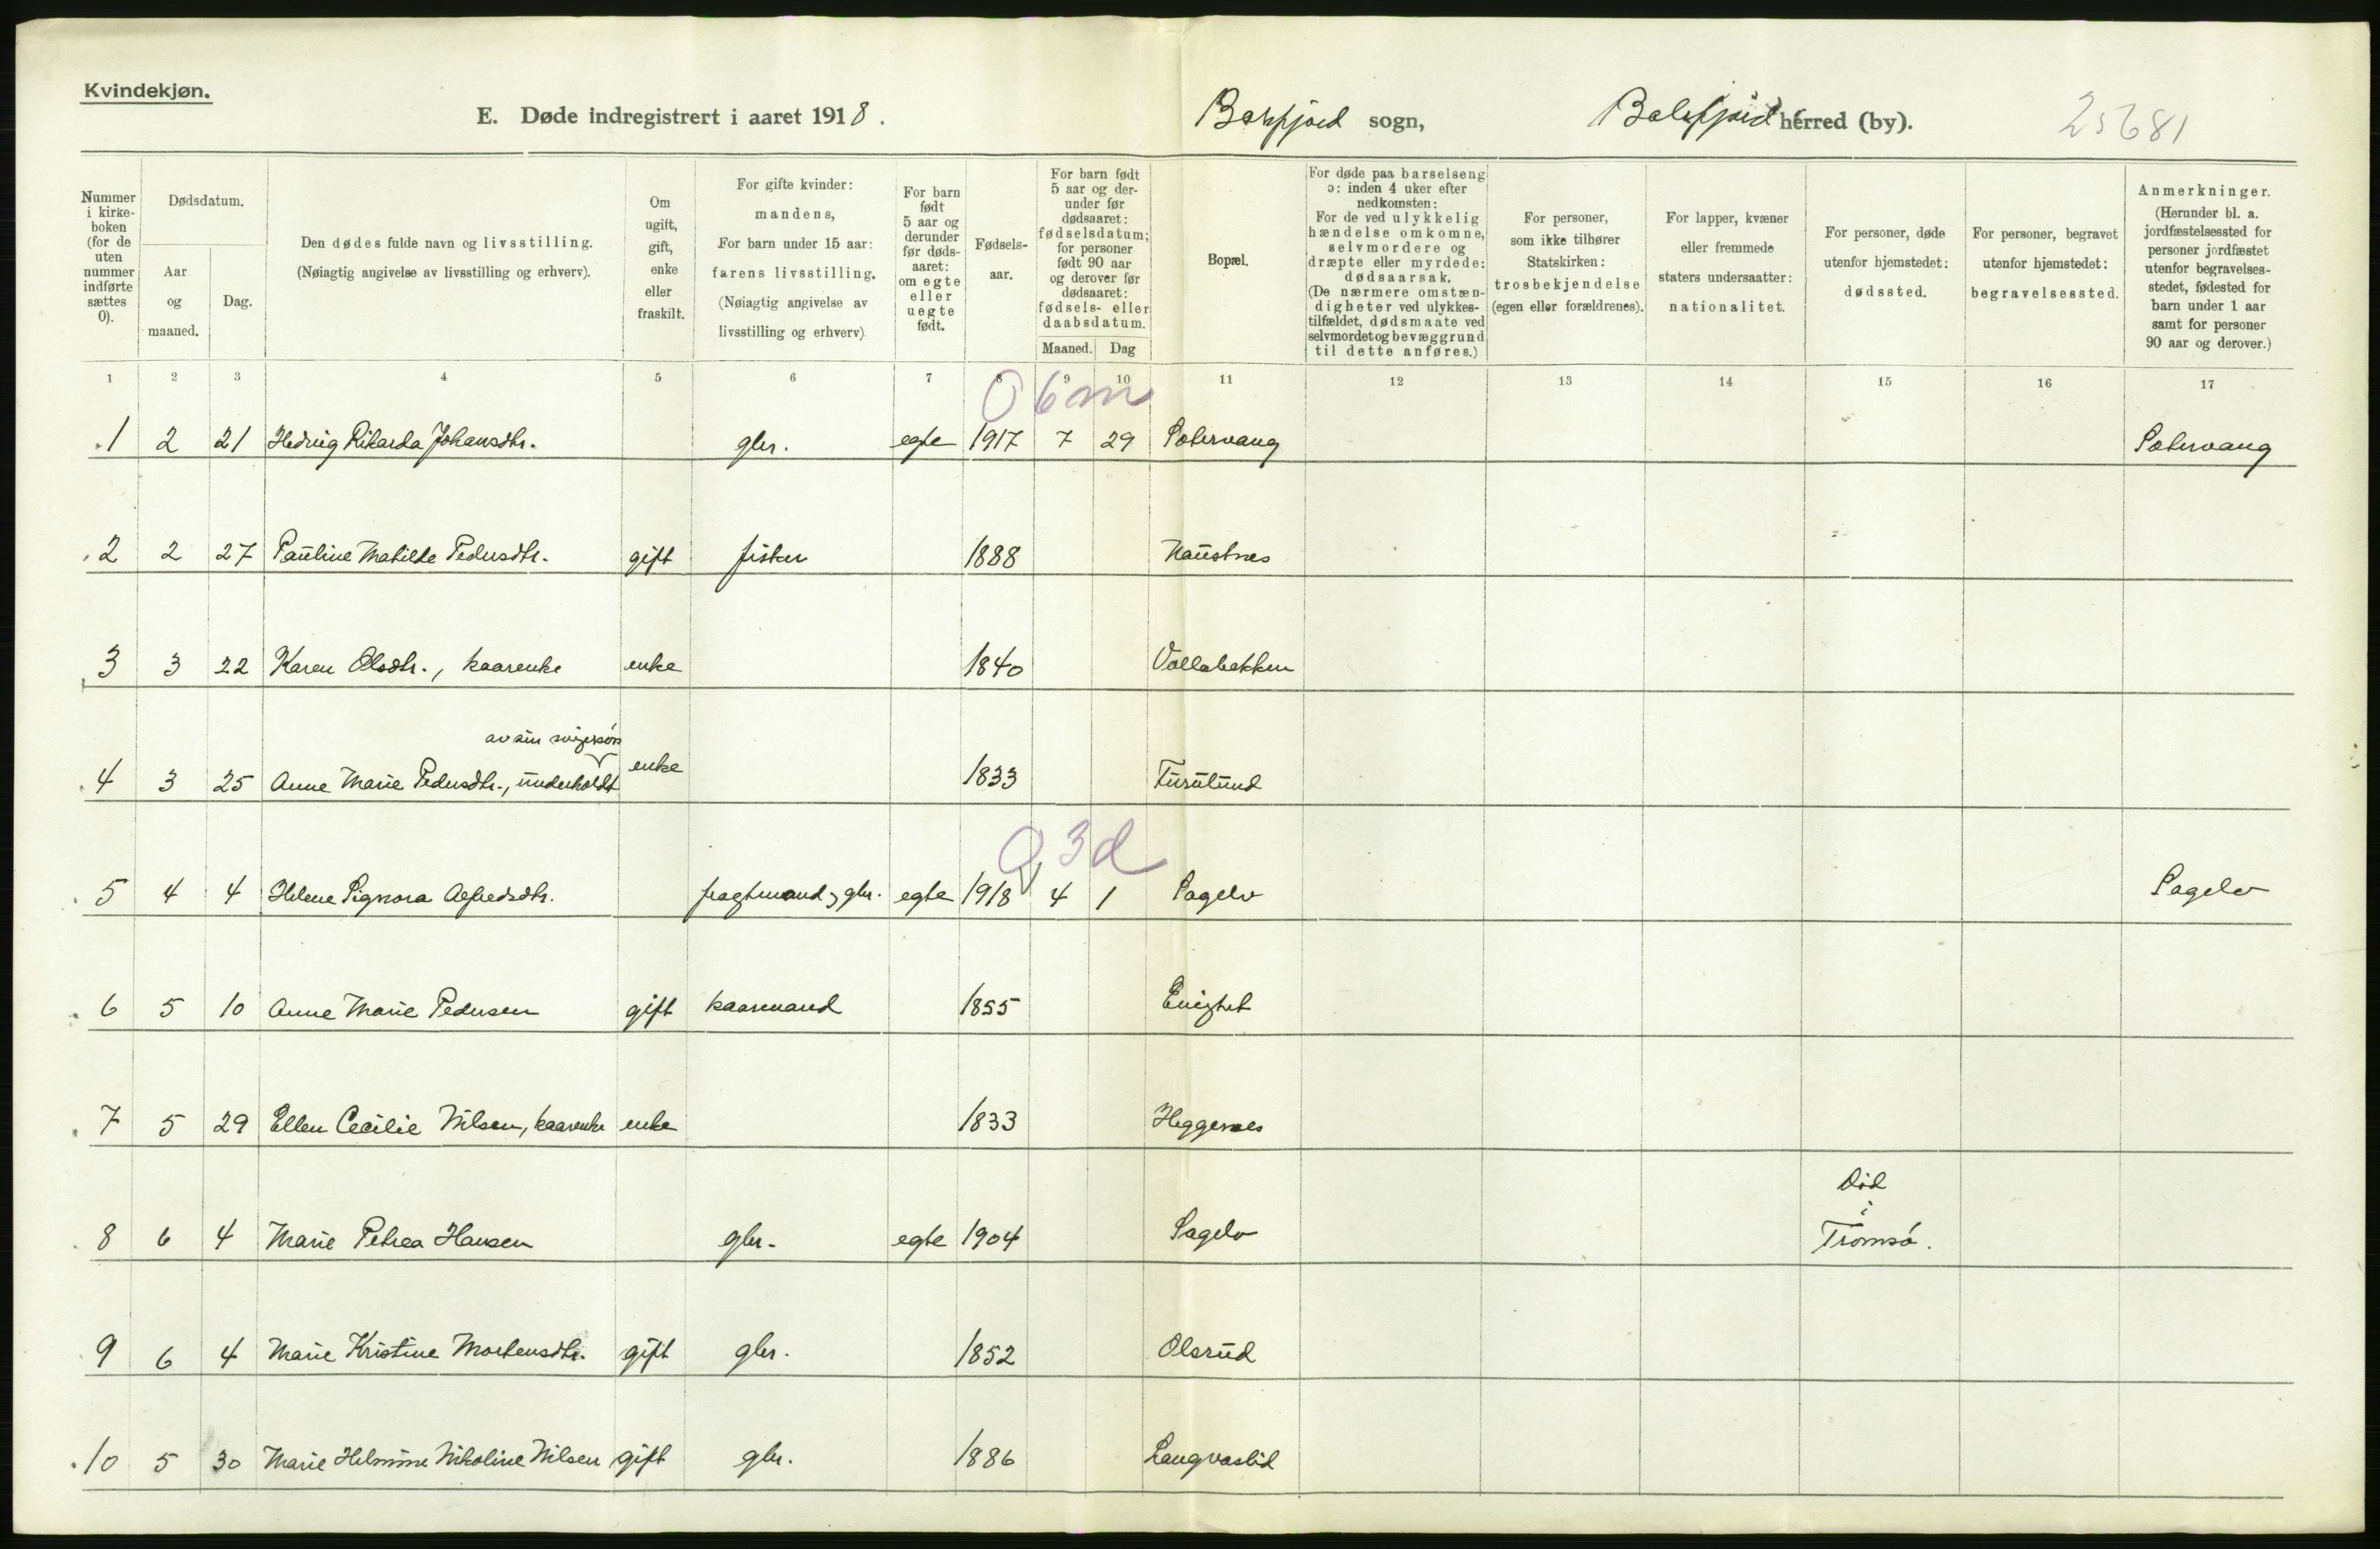 Kvindekjøn.
E. Døde indregistrert i aaret 1918.
Balsfjord sogn,
Balsfjord herred (by).
25681
Nummer i kirke-boken (for de uten nummer indførte sættes 0).
Dødsdatum.
Aar og maaned.
Dag.
Den dødes fulde navn og livsstilling.
(Nøiagtig angivelse av livsstilling og erhverv).
Om ugift, gift, enke eller fraskilt.
For gifte kvinder:
mandens,
For barn under 15 aar:
farens livsstilling.
(Nøiagtig angivelse av
livsstilling og erhverv).
For barn født 5 aar og derunder før døds-aaret: om egte eller uegte født.
Fødsels-aar.
For barn født 5 aar og der-under før dødsaaret: fødselsdatum; for personer født 90 aar og derover før dødsaaret: fødsels- eller daabsdatum.
Maaned. Dag
Bopæl.
For døde paa barselseng
ɔ: inden 4 uker efter
nedkomsten:
For de ved ulykkelig
hændelse omkomne,
selvmordere og
dræpte eller myrdede:
dødsaarsak.
(De nærmere omstæn-
digheter ved ulykkes-
tilfældet, dødsmaate ved
selvmordet og bevæggrund
til dette anføres.)
For personer,
som ikke tilhører
Statskirken:
trosbekjendelse
(egen eller forældrenes).
For lapper, kvæner
eller fremmede
staters undersaatter:
nationalitet.
For personer, døde
utenfor hjemstedet:
dødssted.
For personer, begravet
utenfor hjemstedet:
begravelsessted.
Anmerkninger.
(Herunder bl. a.
jordfæstelsessted for
personer jordfæstet
utenfor begravelses-
stedet, fødested for
barn under 1 aar
samt for personer
90 aar og derover.)
1 2 3 4 5 6 7 8 9 10 11 12 13 14 15 16 17
0 6 m
1 2 21 Hedvig Rikarda Johansdtr. gbr. egte 1917 7 29 Sætervang Sætervang
2 2 27 Pauline Matilde Pedersdtr. gift fisker 1888 Naustnes
3 3 22 Karen Olsdtr., kaarenke enke 1840 Vollabakken
av sin svigersøn
4 3 25 Anne Marie Pedersdtr., underholdt enke 1833 Furulund
0 3 d
5 4 4 Helene Signora Alfredsdtr. fragtmand, gbr. egte 1918 4 1 Sagelv Sagelv
6 5 10 Anne Marie Pedersen gift kaarmand 1855 Enighet
7 5 29 Ellen Cecilie Nilsen, kaarenke enke 1833 Heggenes
Död
i
8 6 4 Marie Petrea Hansen gbr. egte 1904 Sagelv Tromsö.
9 6 4 Marie Kristine Mortensdtr. gift gbr. 1852 Olsrud
10 5 30 Marie Helmine Nikoline Nilsen gift gbr. 1886 Langvaslid